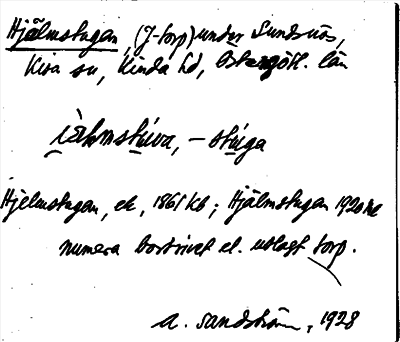 Hjälmstugan, (J-torp) under Sundsnäs,
Kisa sn, Kinda hd, Östergötl. län
jälmstuva, – stuga
Hjelmstugan, ek, 1861 kb; Hjälmstugan 1920
numera bortrivet el. utlagt torp.
A. Sandström, 1928